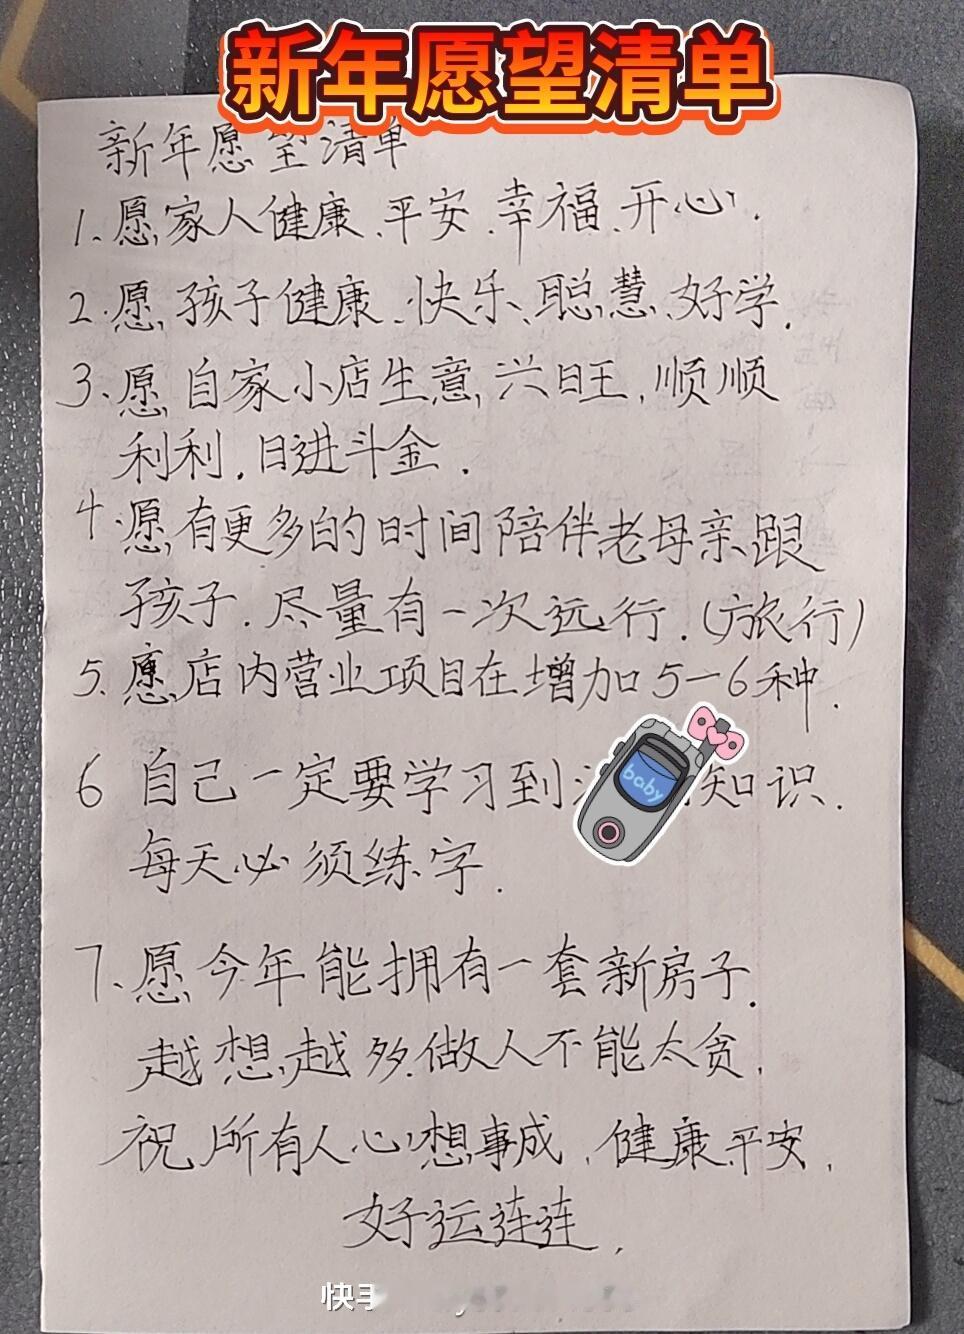 新年愿望清单
新年愿望清单
1、愿家人健康、平安、幸福、开心.
2.愿孩子健康、快乐、聪慧、好学.
3、愿自家小店生意兴旺,顺顺
利利.日进斗金.
4.愿有更多的时间陪伴老母亲跟
孩子.尽量有一次远行.(旅行)
5.愿店内营业项目在增加5-6种.
6 自己一定要学习到 知识.
每天必须练字.
7、愿今年能拥有一套新房子.
越想越多.做人不能太贪.
祝所有人心想事成,健康平安,
好运连连.
baby
快手